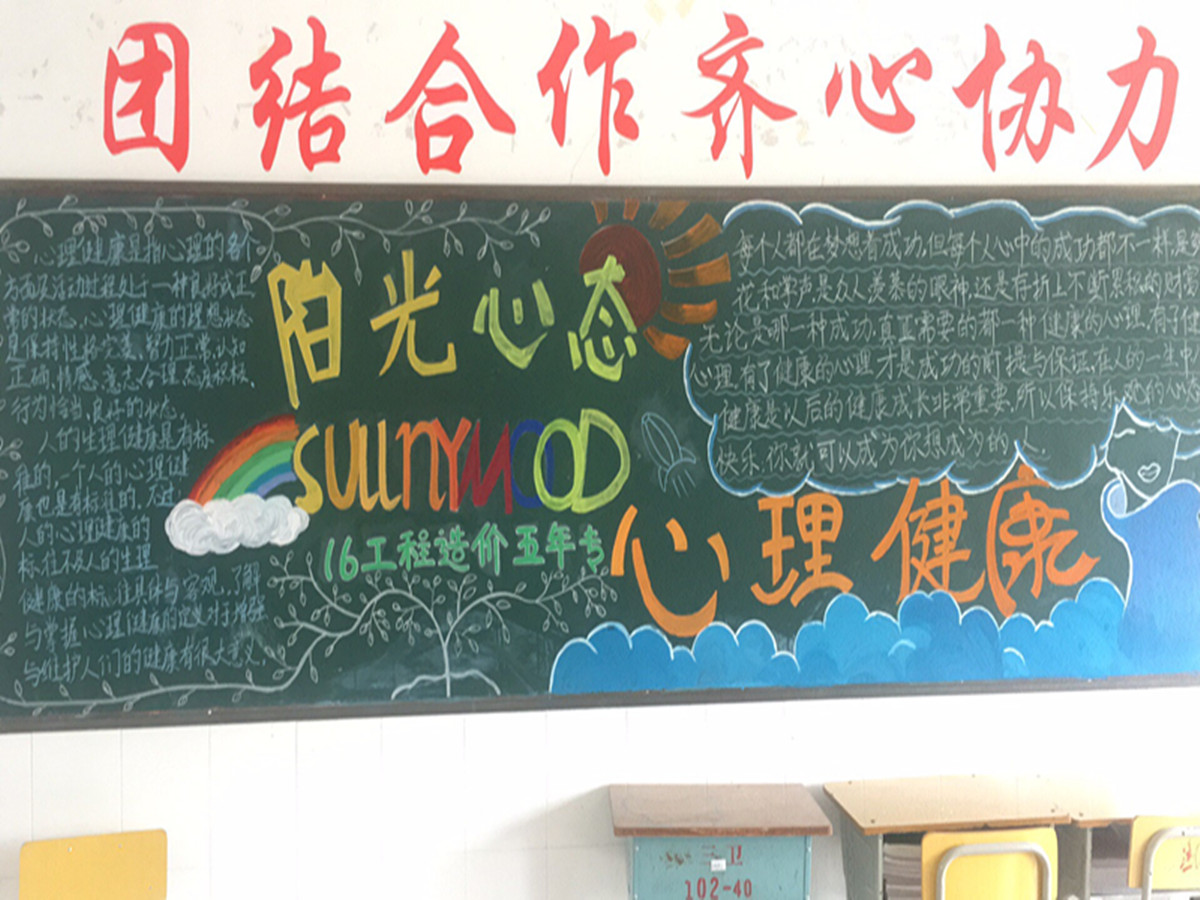 团结合作齐心协力
心理健康是指心理的各个
方面及活动过程处于一种良好或正
常的状态。心理健康的理想状态
是保持性格完美、智力正常、认知
正确、情感 意志合理 态度积极、
行为恰当、良好的状态。
人的生理健康是有标
准的,一个人的心理健
康也是有标准的。不过
人的心理健康的
标准不及人的生理
健康的标准具体与客观。了解
与掌握心理健康的定义对于增强
与维护人们的健康有很大意义。
阳光心态
SUNNYMOOD
16工程造价五年专
每个人都在梦想着成功,但每个人心中的成功都不一样,是
花和掌声,是众人羡慕的眼神,还是存折上不断累积的财富
无论是哪一种成功,真正需要的都一种健康的心理,有了
心理,有了健康的心理才是成功的前提与保证,在人的一生中
健康是以后的健康成长非常重要,所以保持乐观的心
快乐,你就可以成为你想成为的人
心理健康
三卫
102-40